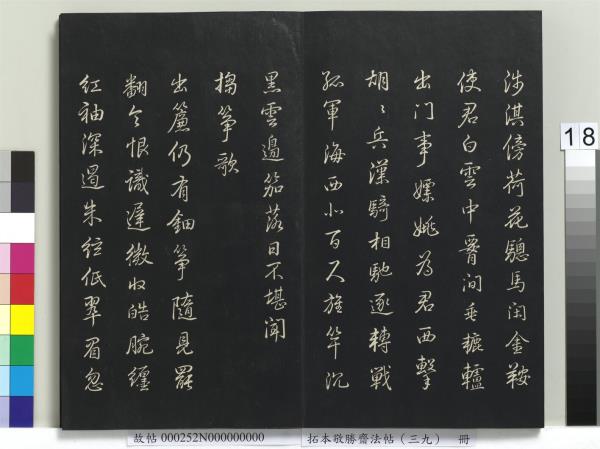 涉淇傍荷花驄馬閑金鞍
使君白雲中腰間垂轆轤
出門事嫖姚為君西擊
胡〻兵漢騎相馳逐轉戰
孤軍海西北百尺旌竿沉
黑雲邊笳落日不堪聞
搊箏歌
出簾仍有鈿箏隨見罷
翻令恨識遲微收皓腕纏
紅袖深遏朱絃低翠眉忽
18
故帖 000252N000000000
拓本敬勝齋法帖（三九） 冊